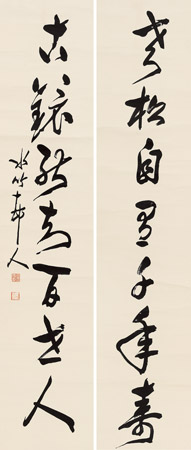 老松自有千年壽
古鏡能知百世人
水竹邨人